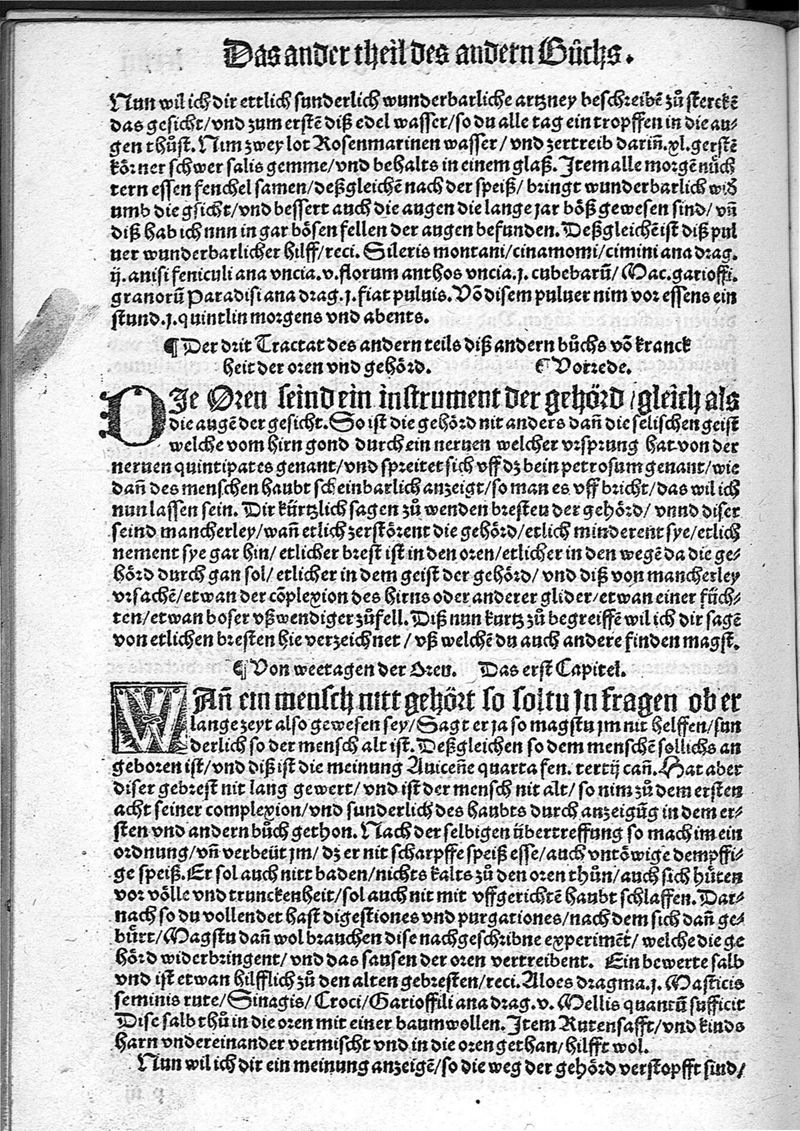 Das ander theil des andern Bůchs.
Nun wil ich dir ettlich sunderlich wunderbarliche artzney beschreibē zů sterckē
das gesicht/vnd zum erstē diß edel wasser/so du alle tag ein tropffen in die au-
gen thůst. Nim zwey lot Rosenmarinen wasser/ vnd zertreib darin̄.xl.gerstē
kör ner schwer salis gemme/vnd behalts in einem glaß. Item alle morgē nůch
tern essen fenchel samen/deßgleichē nach der speiß/ bringt wunderbarlich wid̄
umb die gsicht/vnd bessert auch die augen die lange jar böß gewesen sind/ vn̄
diß hab ich nnn in gar bösen fellen der augen befunden. Deßgleichē ist diß pul
uer wunderbarlicher hilff/reci. Sileris montani/cinamomi/cimini ana drag.
ij. anisi feniculi ana vncia.v.florum anthos vncia.j. cubebarū/Mac.garioffi.
granorū Paradisi ana drag.j.fiat puluis. Vō disem puluer nim vor essens ein
stund.j.quintlin morgens vnd abents.
¶ Der drit Tractat des andern teils diß andern bůchs vō kranck
heit der oren vnd gehörd. ¶ Vorrede.
DIe Oren seind ein instrument der gehörd/gleich als
die augē der gesicht. So ist die gehörd nit anders dan̄ die selischen geist
welche vom hirn gond durch ein neruen welcher vrsprung hat von der
neruen quintipates genant/vnd spreitet sich vff dz bein petrosum genant/wie
dan̄ des menschen haubt scheinbarlich anzeigt/so man es vff bricht/das wil ich
nun lassen sein. Dir kürtzlich sagen zů wenden bresten der gehörd/ vnnd diser
seind mancherley/wan̄ etlich zerstörent die gehörd/etlich minderent sye/etlich
nement sye gar hin/etlicher brest ist in den oren/etlicher in den wegē da die ge-
hörd durch gan sol/etlicher in dem geist der gehörd/ vnd diß von mancherley
vrsachē/etwan der cōplexion des hirns oder anderer glider/etwan einer füch-
ten/etwan boser vßwendiger zůfell. Diß nun kurtz zů begreiffē wil ich dir sagē
von etlichen bresten hie verzeichnet/ vß welchē du auch andere finden magst.
¶ Von weetagen der Oren. Das erst Capitel.
WAn̄ ein mensch nitt gehört so soltu jn fragen ob er
lange zeyt also gewesen sey/Sagt er ja so magstu jm nit helffen/sun
derlich so der mensch alt ist. Deßgleichen so dem menschē sollichs an
geboren ist/vnd diß ist die meinung Auicēne quarta fen. tertij can̄. Hat aber
diser gebrest nit lang gewert/ vnd ist der mensch nit alt/ so nim zů dem ersten
acht seiner complexion/vnd sunderlich des haubts durch anzeigūg in dem er-
sten vnd andern bůch gethon. Nach der selbigen übertreffung so mach im ein
ordnung/vn̄ verbeüt jm/ dz er nit scharpffe speiß esse/auch vntöwige dempffi-
ge speiß. Er sol auch nitt baden/nichts kalts zů den oren thůn/auch sich hüten
vor völle vnd trunckenheit/sol auch nit mit vffgerichtē haubt schlaffen. Dar-
nach so du vollendet hast digestiones vnd purgationes/nach dem sich dan̄ ge-
bürt/Magstu dan̄ wol brauchen dise nachgeschribne experimēt/ welche die ge
hörd widerbringent/vnd das sausen der oren vertreibent. Ein bewerte salb
vnd ist etwan hilfflich zů den alten gebresten/reci. Aloes dragma.j. Masticis
seminis rute/Sinagis/ Croci/Garioffili ana drag.v. Mellis quantū sufficit
Dise salb thů in die oren mit einer baumwollen. Item Rutensafft/vnd kinds
harn vndereinander vermischt vnd in die oren gethan/hilfft wol.
Nun wil ich dir ein meinung anzeigē/so die weg der gehörd verstopfft sind/